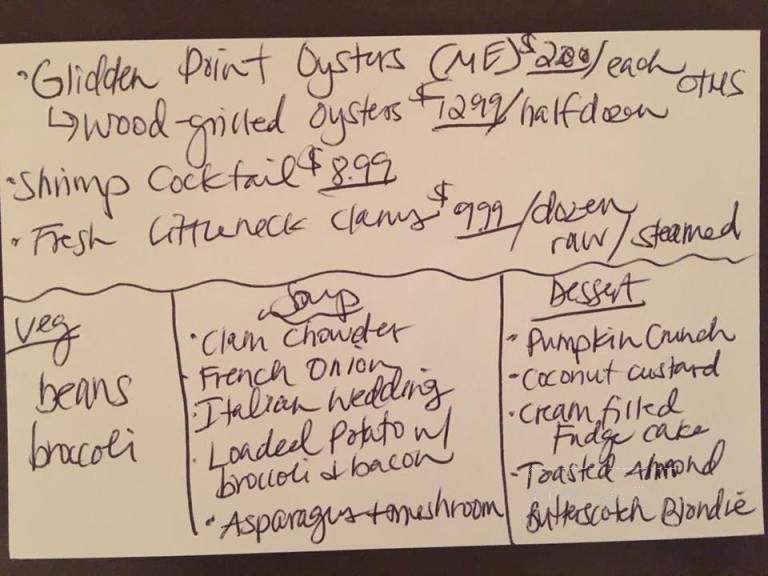 • Glidden Point Oysters (ME) $2.00/each OTHS
↳ Wood-grilled oysters $12.99/half dozen
• Shrimp Cocktail $8.99
• Fresh Littleneck Clams $9.99/dozen
raw/steamed
Veg
beans
broccoli
Soup
• Clam Chowder
• French Onion
• Italian Wedding
• Loaded Potato w/
broccoli & bacon
• Asparagus + mushroom
Dessert
• Pumpkin Crunch
• Coconut custard
• Cream filled
Fudge cake
• Toasted Almond
Butterscotch Blondie